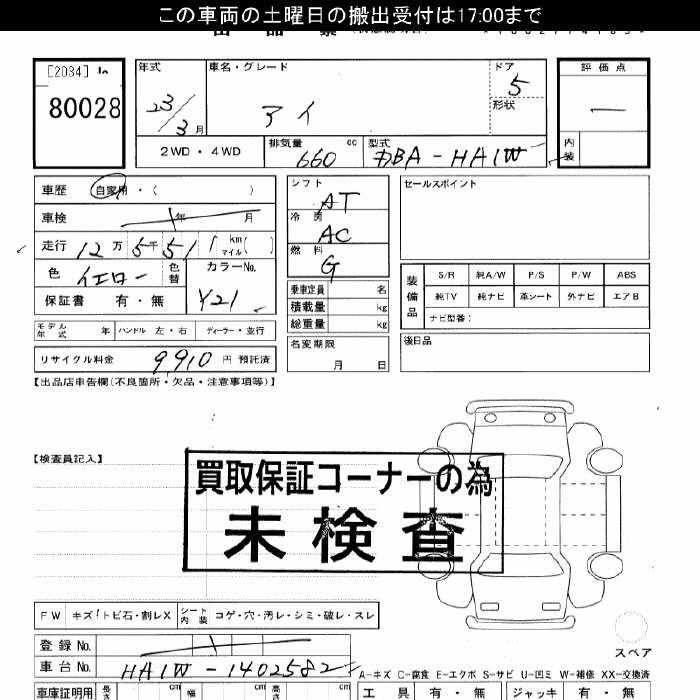 この車両の土曜日の搬出受付は17:00まで
[2034]
80028
年式
23/3月
車名・グレード
アイ
ドア
5
形状
評価点
—
内装
2WD・4WD
排気量
660 cc
型式
DBA-HA1W
車歴 自家用・( )
車検 年 月
走行 12万5千51 km マイル( )
色 イエロー 色替
カラーNo.
Y21
保証書 有・無
モデル年式 年 ハンドル 左・右 ディーラー・並行
リサイクル料金 9910 円 預託済
シフト
AT
冷房
AC
燃料
G
乗車定員 名
積載量 kg
総重量 kg
名変期限
月 日
セールスポイント
装備品
S/R 純A/W P/S P/W ABS
純TV 純ナビ 革シート 外ナビ エアB
ナビ型番:
後日品
【出品店申告欄(不良箇所・欠品・注意事項等)】
【検査員記入】
買取保証コーナーの為
未検査
FW キズ/トビ石・割レX シート内装 コゲ・穴・汚レ・シミ・破レ・スレ
登録No.
車台No. HA1W-1402582
スペア
A-キズ C-腐食 E-エクボ S-サビ U-凹ミ W-補修 XX-交換済
車庫証明用 長さ cm 幅 cm 高さ cm
工具 有・無 ジャッキ 有・無